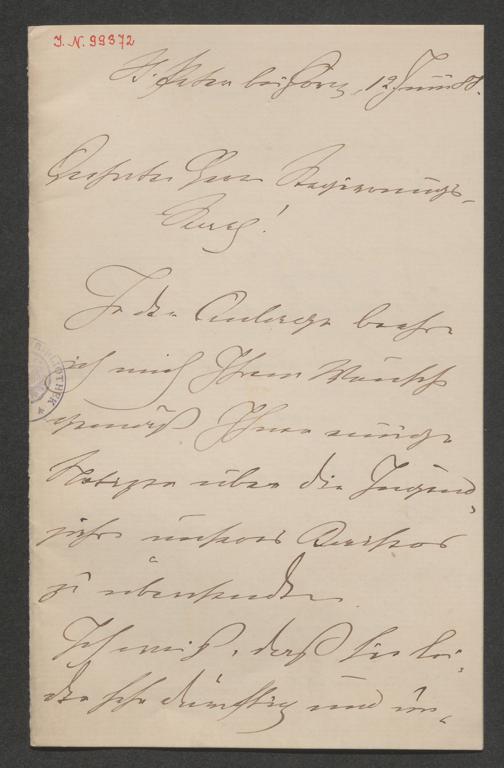 I.N. 99372
St. Peter bei Görz, 12 Juni 88.
Geehrter Herr Regierungs-
Rath!
In der Anlage beehre
ich mich Ihrem Wunsche
gemäß Ihnen einige
Notizen über die Jugend-
jahre unseres
zu übersenden.
Ich weiß, daß sie lei-
der sehr dürftig und un-
BIBLIOTHEK